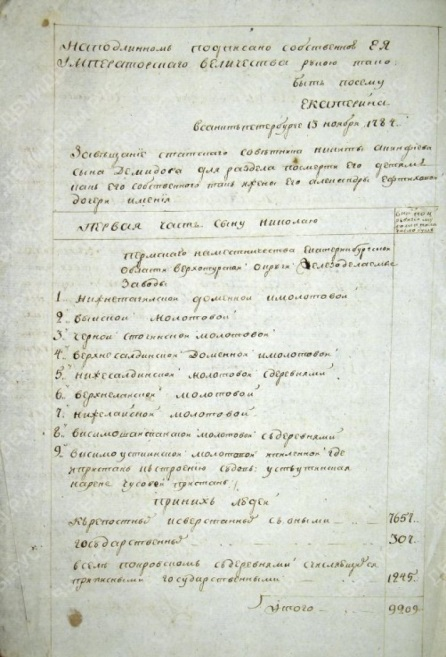 Наподлинномъ подписано собственною ЕЯ
ИМПЕРАТОРСКАГО ВЕЛИЧЕСТВА рукою тако:
быть посему
ЕКАТЕРИНА
Всанктпетербурге 13 ноября 1784
Завещание статскаго советника никиты акинфиева
сына Демидова для раздела посмерти его детямъ
какъ его собственного такъ и жены его александры евтиховой
дочери имения
Первая часть. Сыну Николаю
Пермскаго наместничества Екатеринбургской
области верхотурской округи Железоделаемые
Заводы
1. Нижнетагилской доменной имолотовой
2. Выйской молотовой
3. Черноисточинской молотовой
4. Верхнесалдинской доменной имолотовой
5. Нижнесалдинской молотовой сдеревнями
6. Верхнелайской молотовой
7. Нижнелайской молотовой
8. Висимошайтанской молотовой сдеревнями
9. Висимоуткинской молотовой где
ипристань кстроению судовъ устьуткинская
нареке чусовой пристань
Принихъ людей
Крепостных исверстанных съоными 7657
государственных 307
Вселе покровскомъ сдеревнями
приписными государственными 1245
Итого 9209